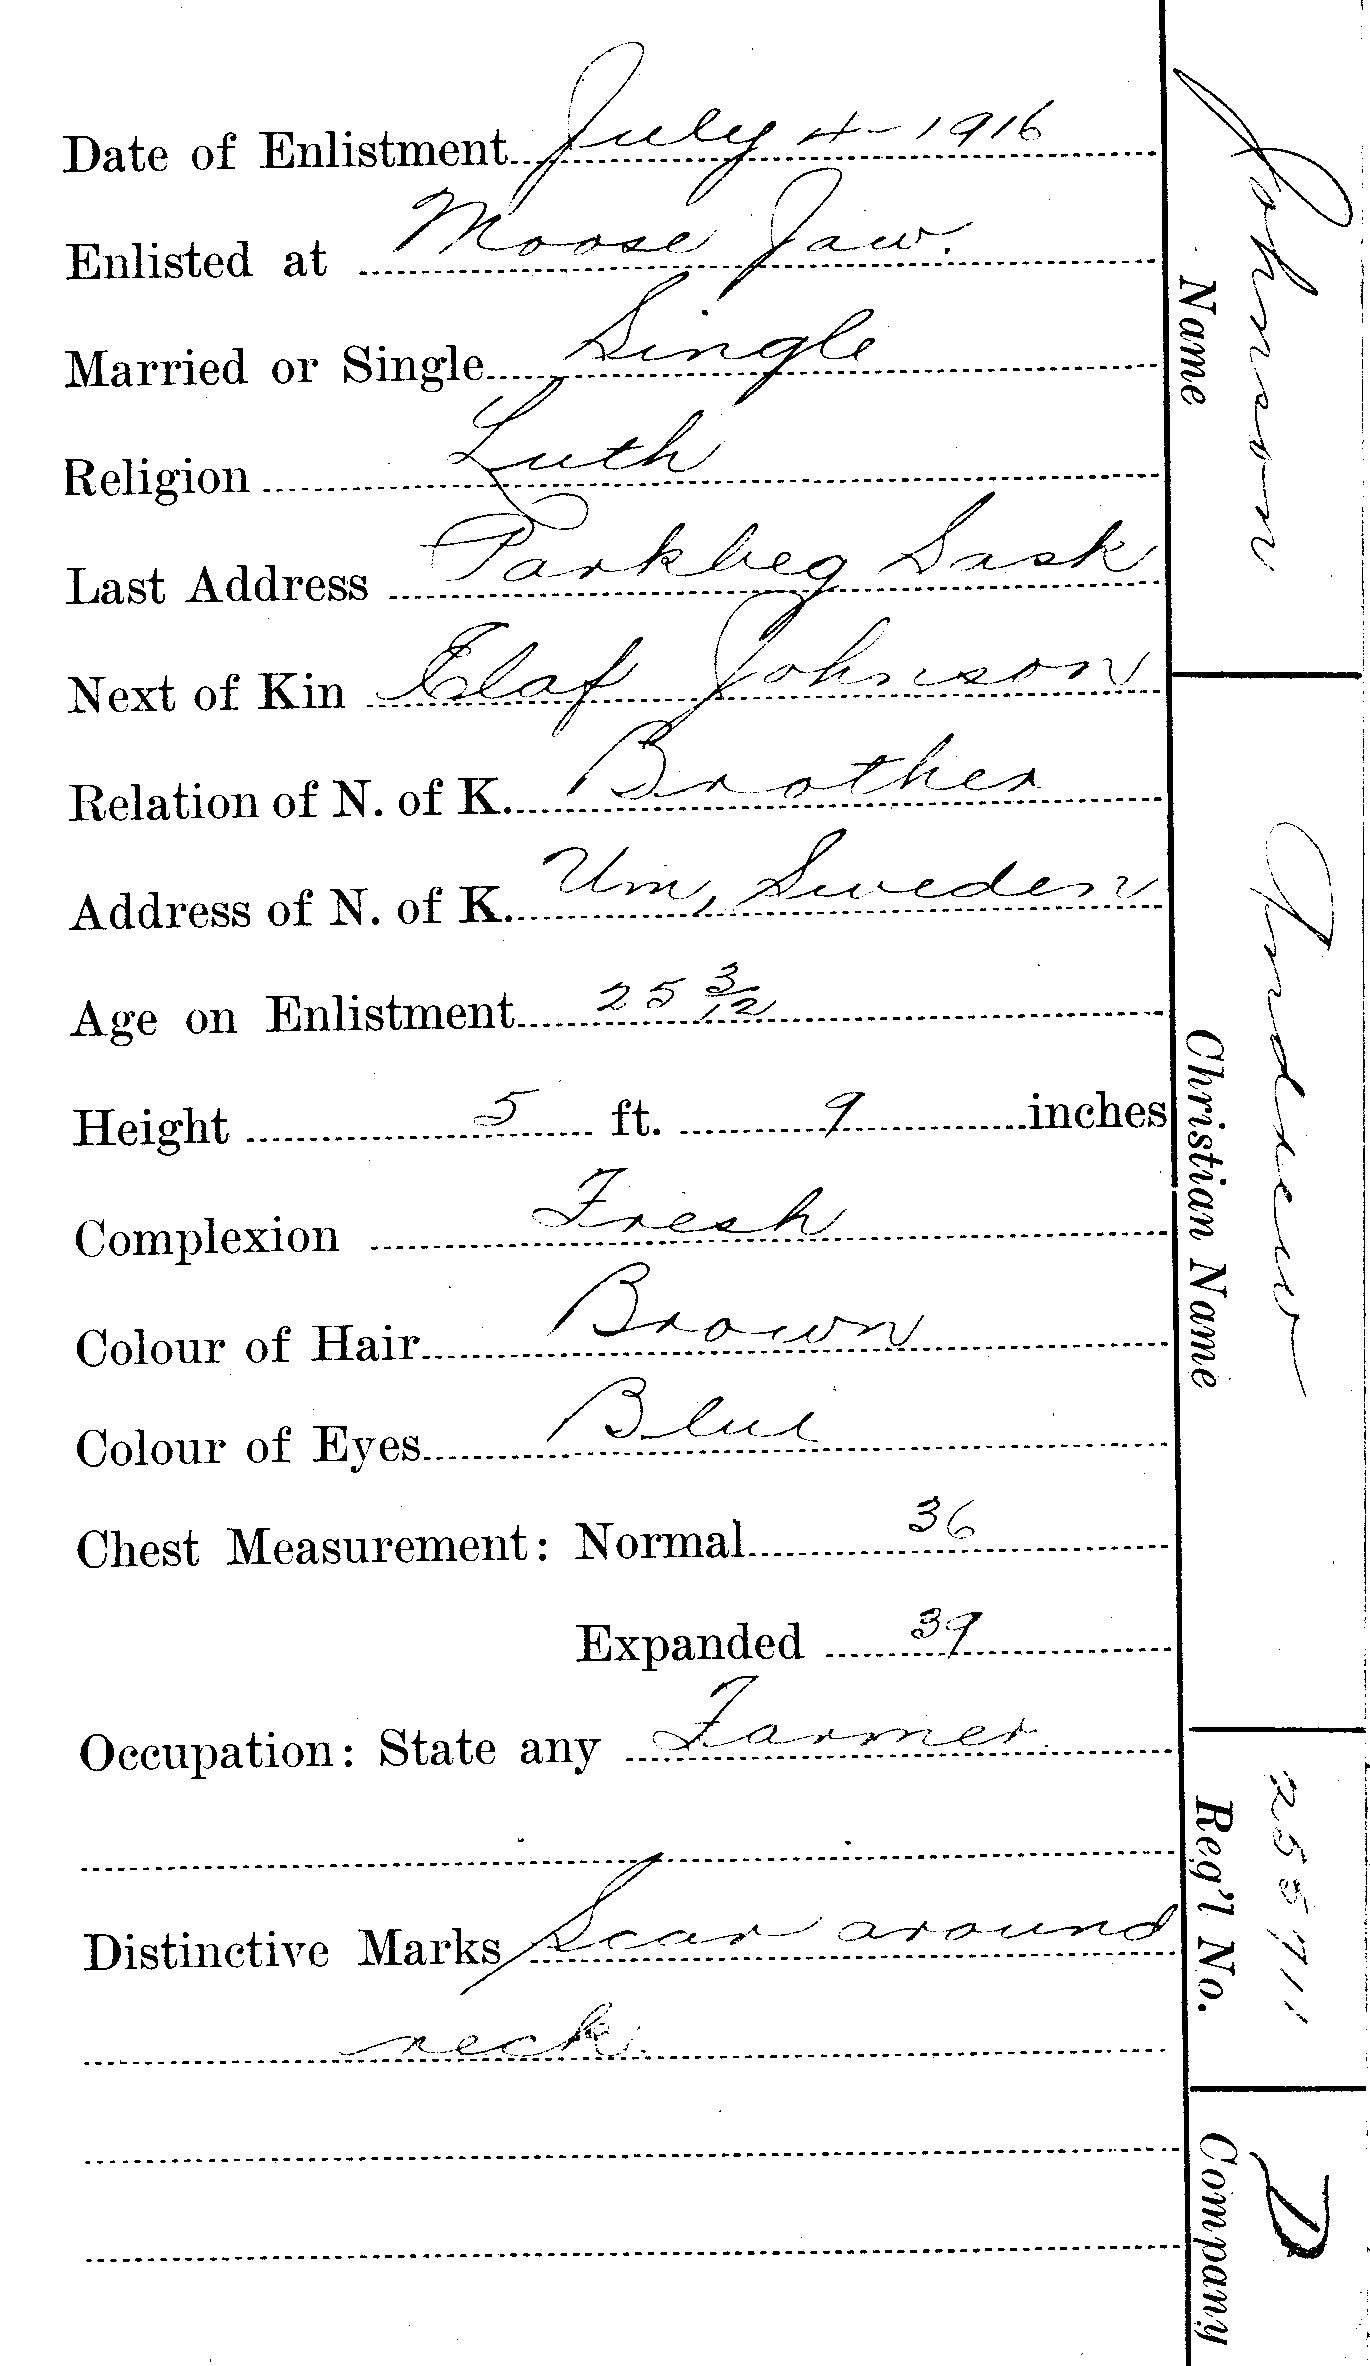 Date of Enlistment July 4 - 1916
Enlisted at Moose Jaw.
Married or Single Single
Religion Luth
Last Address Parkbeg Sask
Next of Kin Olaf Johnson
Relation of N. of K. Brother
Address of N. of K. Um, Sweden
Age on Enlistment 25 3/12
Height 5 ft. 9 inches
Complexion Fresh
Colour of Hair Brown
Colour of Eyes Blue
Chest Measurement: Normal 36
Expanded 39
Occupation: State any Farmer
Distinctive Marks Scar around
neck.
Johnson
Name
Andrew
Christian Name
255711
Reg'l No.
D
Company